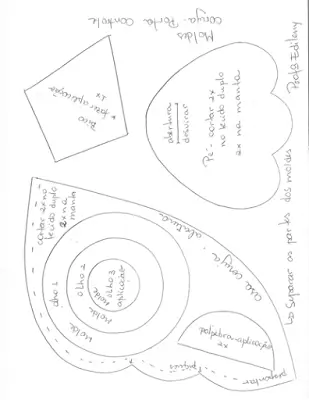 Moldes
coruja - Porta Controle
Bico
* fazer aplicação
2x
abertura
desvirar
Pé - cortar 2x
no tecido duplo
2x na manta
Profª Edileny
↳ Separar as partes dos moldes
cortar 2x no
tecido duplo
2x na
manta
asa coruja
abertura
olho 1
Molde
olho 2
Molde
olho 3
aplicação
2x
pespontar